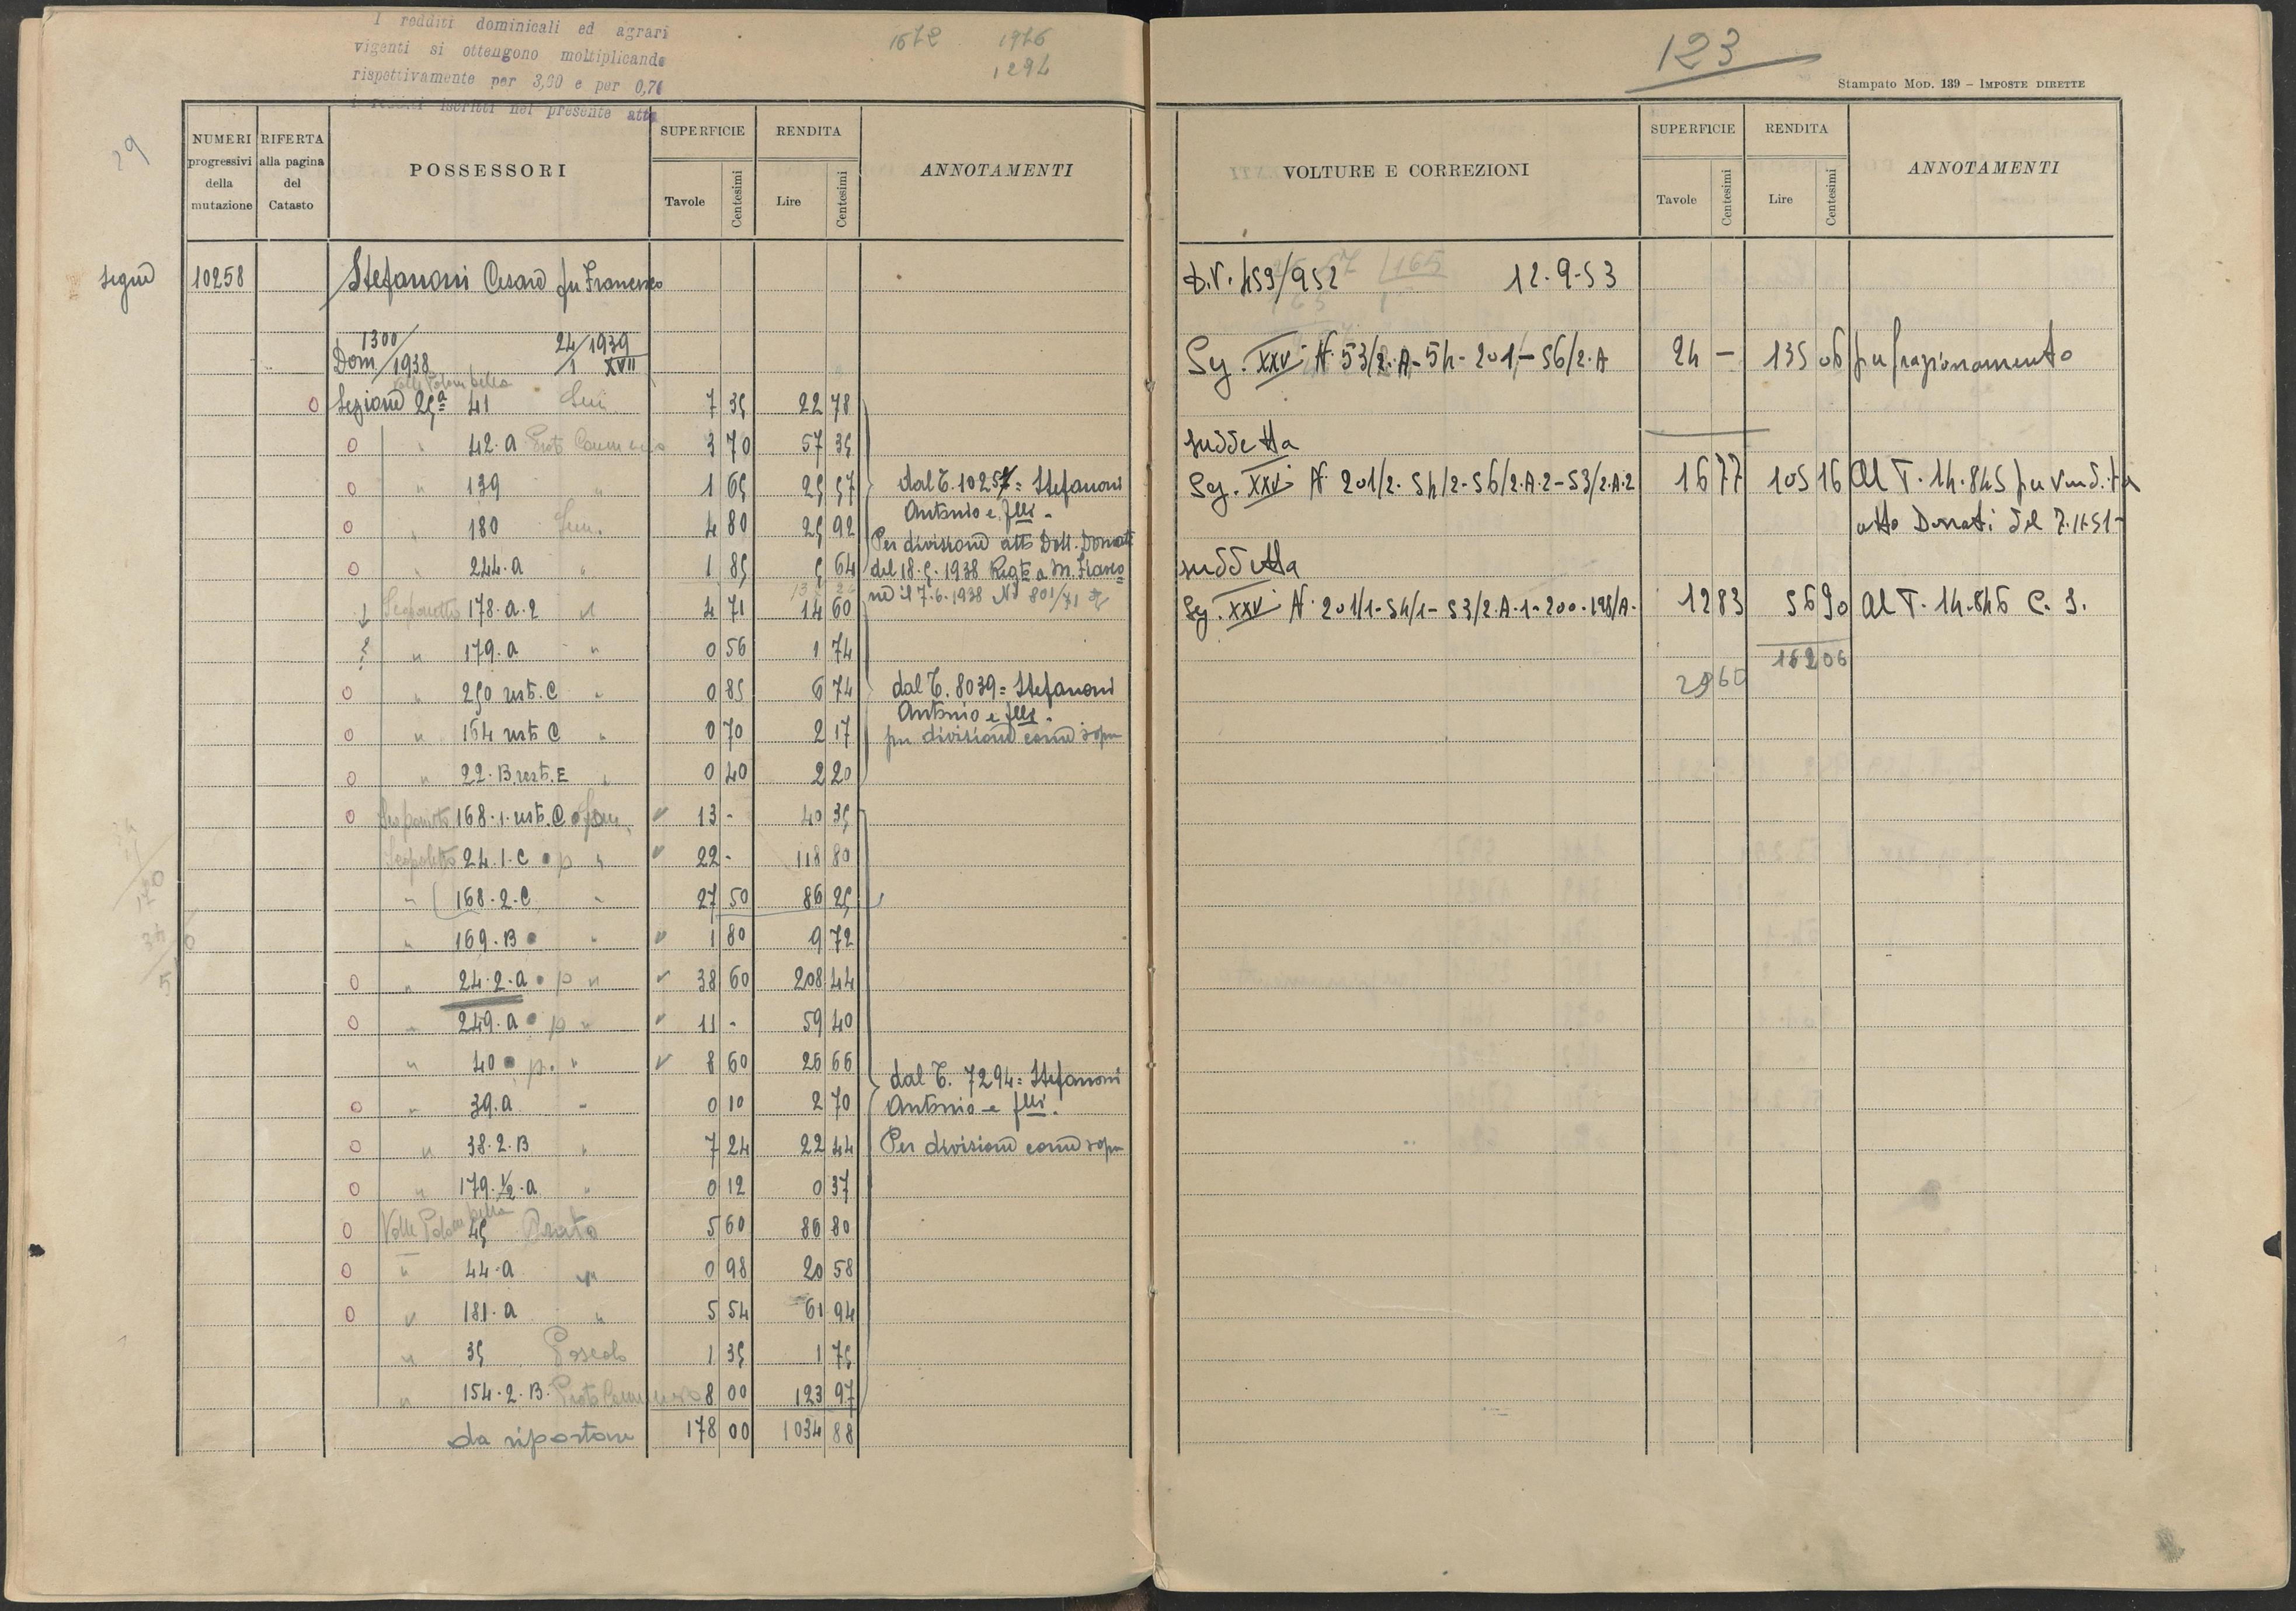 I redditi dominicali ed agrari
vigenti si ottengono moltiplicando
rispettivamente per 3,60 e per 0,76
i redditi iscritti nel presente atto
1672 1976
1294
29
NUMERI progressivi della mutazione
RIFERTA alla pagina del Catasto
POSSESSORI
SUPERFICIE
Tavole Centesimi
RENDITA
Lire Centesimi
ANNOTAMENTI
segue 10258 Stefanoni Cesare fu Francesco
1300/1938 24/1 1939
Dom XVII
Valle Palombella
0 Sezione 25ª 41 Sem 7 35 22 78
0 " 42.a Prato Cammerio 3 70 57 35
0 " 139 " 1 65 25 57 dal T. 10257 = Stefanoni
Antonio e flli.
0 " 180 Sem. 4 80 25 92 Per divisione atto Dott. Donati
0 224.a " 1 85 5 64 del 18.5.1938 Regto a M. Frasco=
ne il 7.6.1938 No 801/71
178.a.2 4 71 14 60
" 179.a " 0 56 1 74
0 " 250 rest. C " 0 85 6 74 dal T. 8039 = Stefanoni
Antonio e flli.
0 " 164 rest C " 0 70 2 17 per divisione come sopra
0 " 22.B rest. E " 0 40 2 20
0 168.1.rest. C Sem. 13 - 40 35
24.1.C p " 22 - 118 80
" 168.2.C " 27 50 86 25
" 169.B " 1 80 9 72
0 " 24.2.a p " 38 60 208 44
0 " 249.a p " 11 - 59 40
" 40 p. " 8 60 26 66 dal T. 7294 = Stefanoni
0 " 39.a " 0 10 2 70 Antonio e flli.
0 " 38.2.B " 7 24 22 44 Per divisione come sopra
0 " 179.½.a " 0 12 0 37
0 Valle Palombella 45 Prato 5 60 86 80
0 " 44.a " 0 98 20 58
0 " 181.a " 5 54 61 94
" 35 Pascolo 1 35 1 75
" 154.2.B. Prato Cammerio 8 00 123 97
da riportare 178 00 1034 88
123
Stampato MOD. 139 – IMPOSTE DIRETTE
VOLTURE E CORREZIONI
SUPERFICIE
Tavole Centesimi
RENDITA
Lire Centesimi
ANNOTAMENTI
D.V. 459/952 12.9.53
Sez. XXV N. 53/2.A - 54 - 201 - 56/2.A 24 - 135 06 per frazionamento
suddetta
Sez. XXV N. 201/2 - 54/2 - 56/2.A.2 - 53/2.A.2 16 77 105 16 Al T. 14.845 per vendita
atto Donati del 7.11.51
suddetta
Sez. XXV N. 201/1 - 54/1 - 53/2.A.1 - 200 - 198/A. 12 83 56 90 Al T. 14.846 C. S.
162 06
29 60